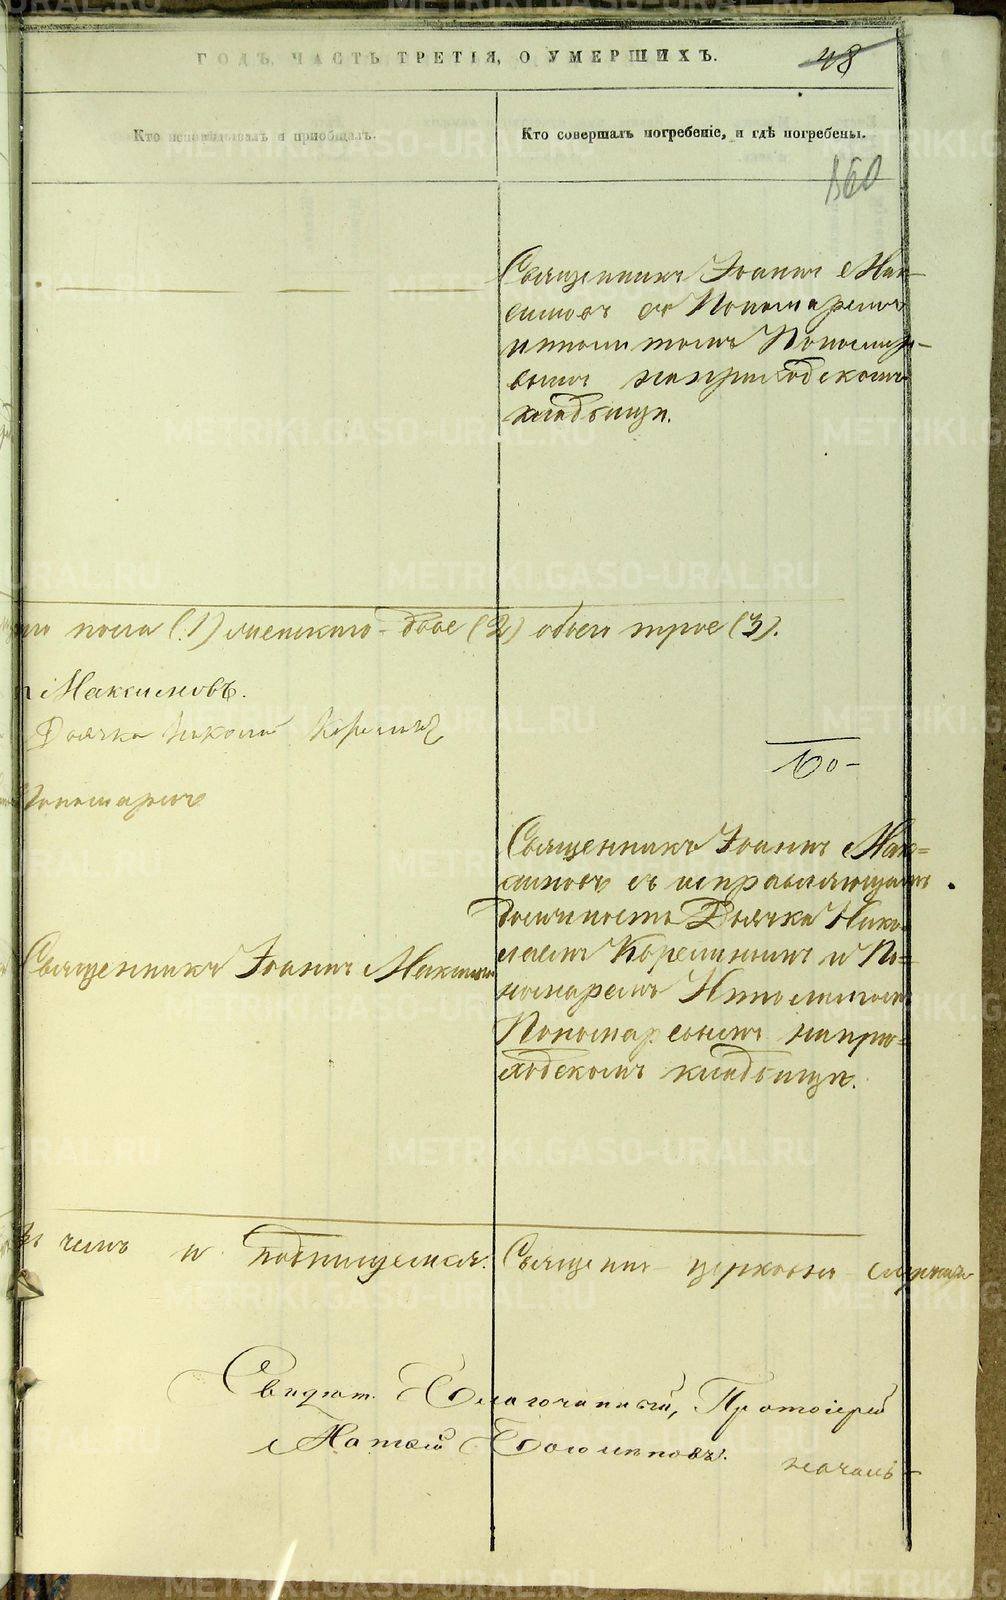 ГОДЪ, ЧАСТЬ ТРЕТІЯ, О УМЕРШИХЪ.
48
Кто исповѣдывалъ и приобщалъ.
Кто совершалъ погребеніе, и гдѣ погребены.
160
Священникъ Іоаннъ Мак-
симовъ съ Пономаремъ
Ипполитомъ Пономаре-
вымъ наприходскомъ
кладбищѣ.
пола (1) женскаго - двое (2) обоего трое (3).
Максимовъ.
Дьячка Николай Корелинъ
Пономаревъ
Бо-
Священникъ Іоаннъ Мак=
симовъ съ исправляющимъ
должность Дьячка Нико-
лаемъ Корелинымъ и По=
номаремъ Ипполитомъ
Пономаревымъ напри=
ходскомъ кладбищѣ.
Священникъ Іоаннъ Максимовъ
чемъ и подпишемся: Священно церковно служи
Свидѣт. Благочинный, Протоіерей
Матѳей
началь-
METRIKI.GASO-URAL.RU